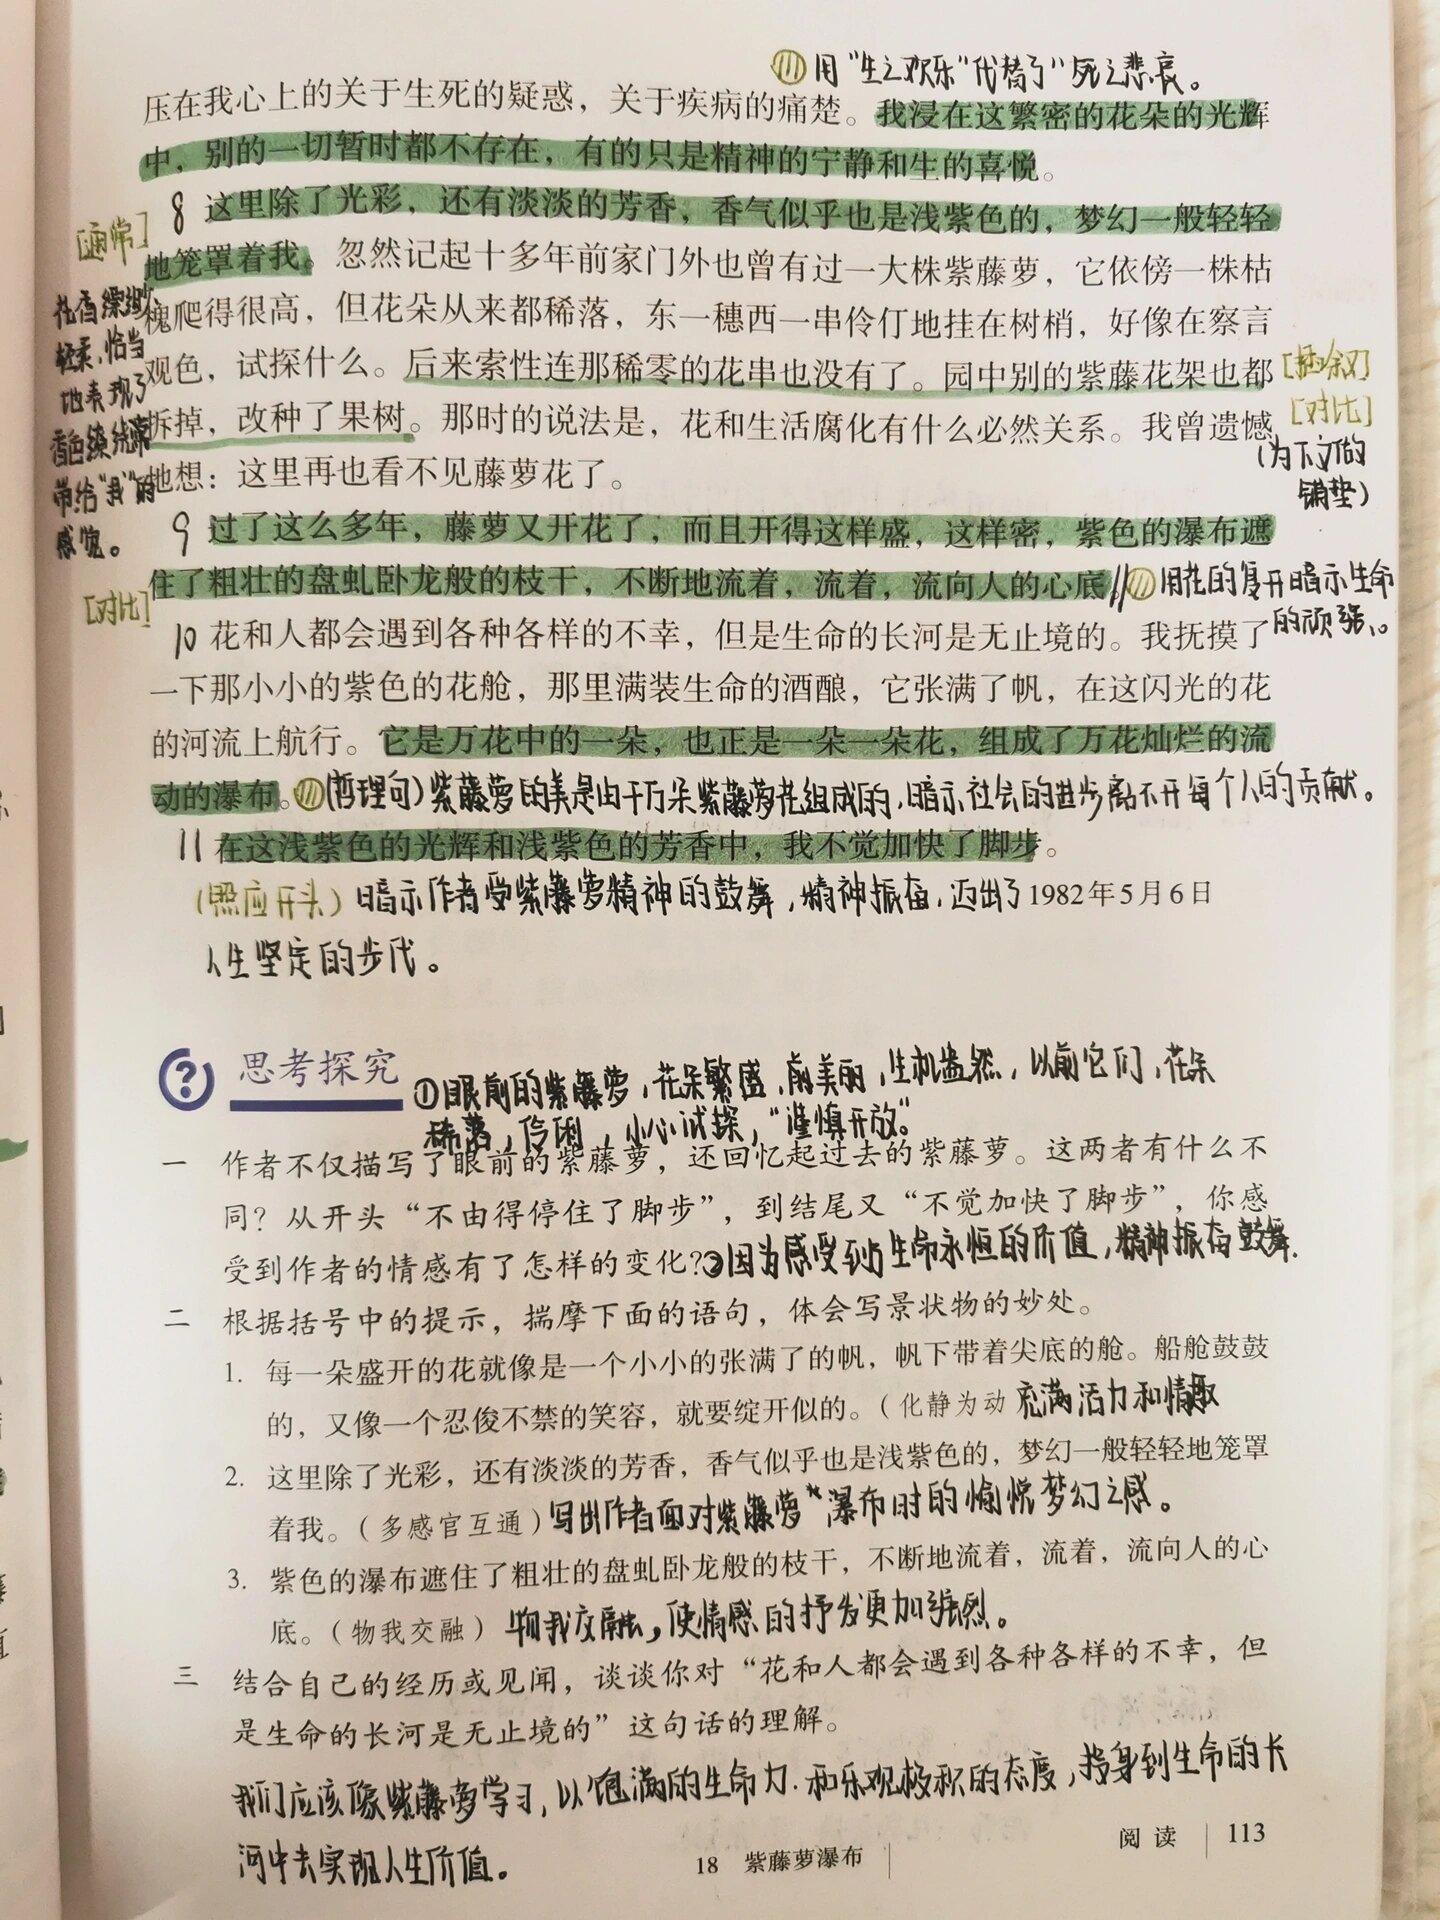 用“生之欢乐”代替了“死之悲哀。
压在我心上的关于生死的疑惑，关于疾病的痛楚。我浸在这繁密的花朵的光辉
中，别的一切暂时都不存在，有的只是精神的宁静和生的喜悦。
8 这里除了光彩，还有淡淡的芳香，香气似乎也是浅紫色的，梦幻一般轻轻
[通常]
地笼罩着我。忽然记起十多年前家门外也曾有过一大株紫藤萝，它依傍一株枯
花香缥缈
槐爬得很高，但花朵从来都稀落，东一穗西一串伶仃地挂在树梢，好像在察言
轻柔，恰当
观色，试探什么。后来索性连那稀零的花串也没有了。园中别的紫藤花架也都
[插叙]
地表现了
[对比]
拆掉，改种了果树。那时的说法是，花和生活腐化有什么必然关系。我曾遗憾
香色缭绕
(为下文做
带给“我”的
铺垫)
地想：这里再也看不见藤萝花了。
感觉。
9 过了这么多年，藤萝又开花了，而且开得这样盛，这样密，紫色的瀑布遮
住了粗壮的盘虬卧龙般的枝干，不断地流着，流着，流向人的心底。
用花的复开暗示生命
的顽强、。
[对比]
10 花和人都会遇到各种各样的不幸，但是生命的长河是无止境的。我抚摸了
一下那小小的紫色的花舱，那里满装生命的酒酿，它张满了帆，在这闪光的花
的河流上航行。它是万花中的一朵，也正是一朵一朵花，组成了万花灿烂的流
动的瀑布。(哲理句)紫藤萝的美是由千万朵紫藤萝花组成的，暗示社会的进步离不开每个人的贡献。
11 在这浅紫色的光辉和浅紫色的芳香中，我不觉加快了脚步。
(照应开头) 暗示作者受紫藤萝精神的鼓舞，精神振奋，迈出了 1982年5月6日
人生坚定的步伐。
思考探究
①眼前的紫藤萝，花朵繁盛，美丽，生机盎然，以前它们，花朵
稀落，伶俐，小心试探，“谨慎开放。”
一 作者不仅描写了眼前的紫藤萝，还回忆起过去的紫藤萝。这两者有什么不
同？从开头“不由得停住了脚步”，到结尾又“不觉加快了脚步”，你感
受到作者的情感有了怎样的变化？②因为感受到生命永恒的价值，精神振奋鼓舞.
二 根据括号中的提示，揣摩下面的语句，体会写景状物的妙处。
1. 每一朵盛开的花就像是一个小小的张满了的帆，帆下带着尖底的舱。船舱鼓鼓
的，又像一个忍俊不禁的笑容，就要绽开似的。（化静为动 充满活力和情趣
2. 这里除了光彩，还有淡淡的芳香，香气似乎也是浅紫色的，梦幻一般轻轻地笼罩
着我。（多感官互通）写出作者面对紫藤萝“瀑布时的愉悦梦幻之感。
3. 紫色的瀑布遮住了粗壮的盘虬卧龙般的枝干，不断地流着，流着，流向人的心
底。（物我交融） 物我交融，使情感的抒发更加强烈。
三 结合自己的经历或见闻，谈谈你对“花和人都会遇到各种各样的不幸，但
是生命的长河是无止境的”这句话的理解。
我们应该像紫藤萝学习，以饱满的生命力.和乐观极积的态度，投身到生命的长
河中去实现人生价值。
18 紫藤萝瀑布
阅读 113